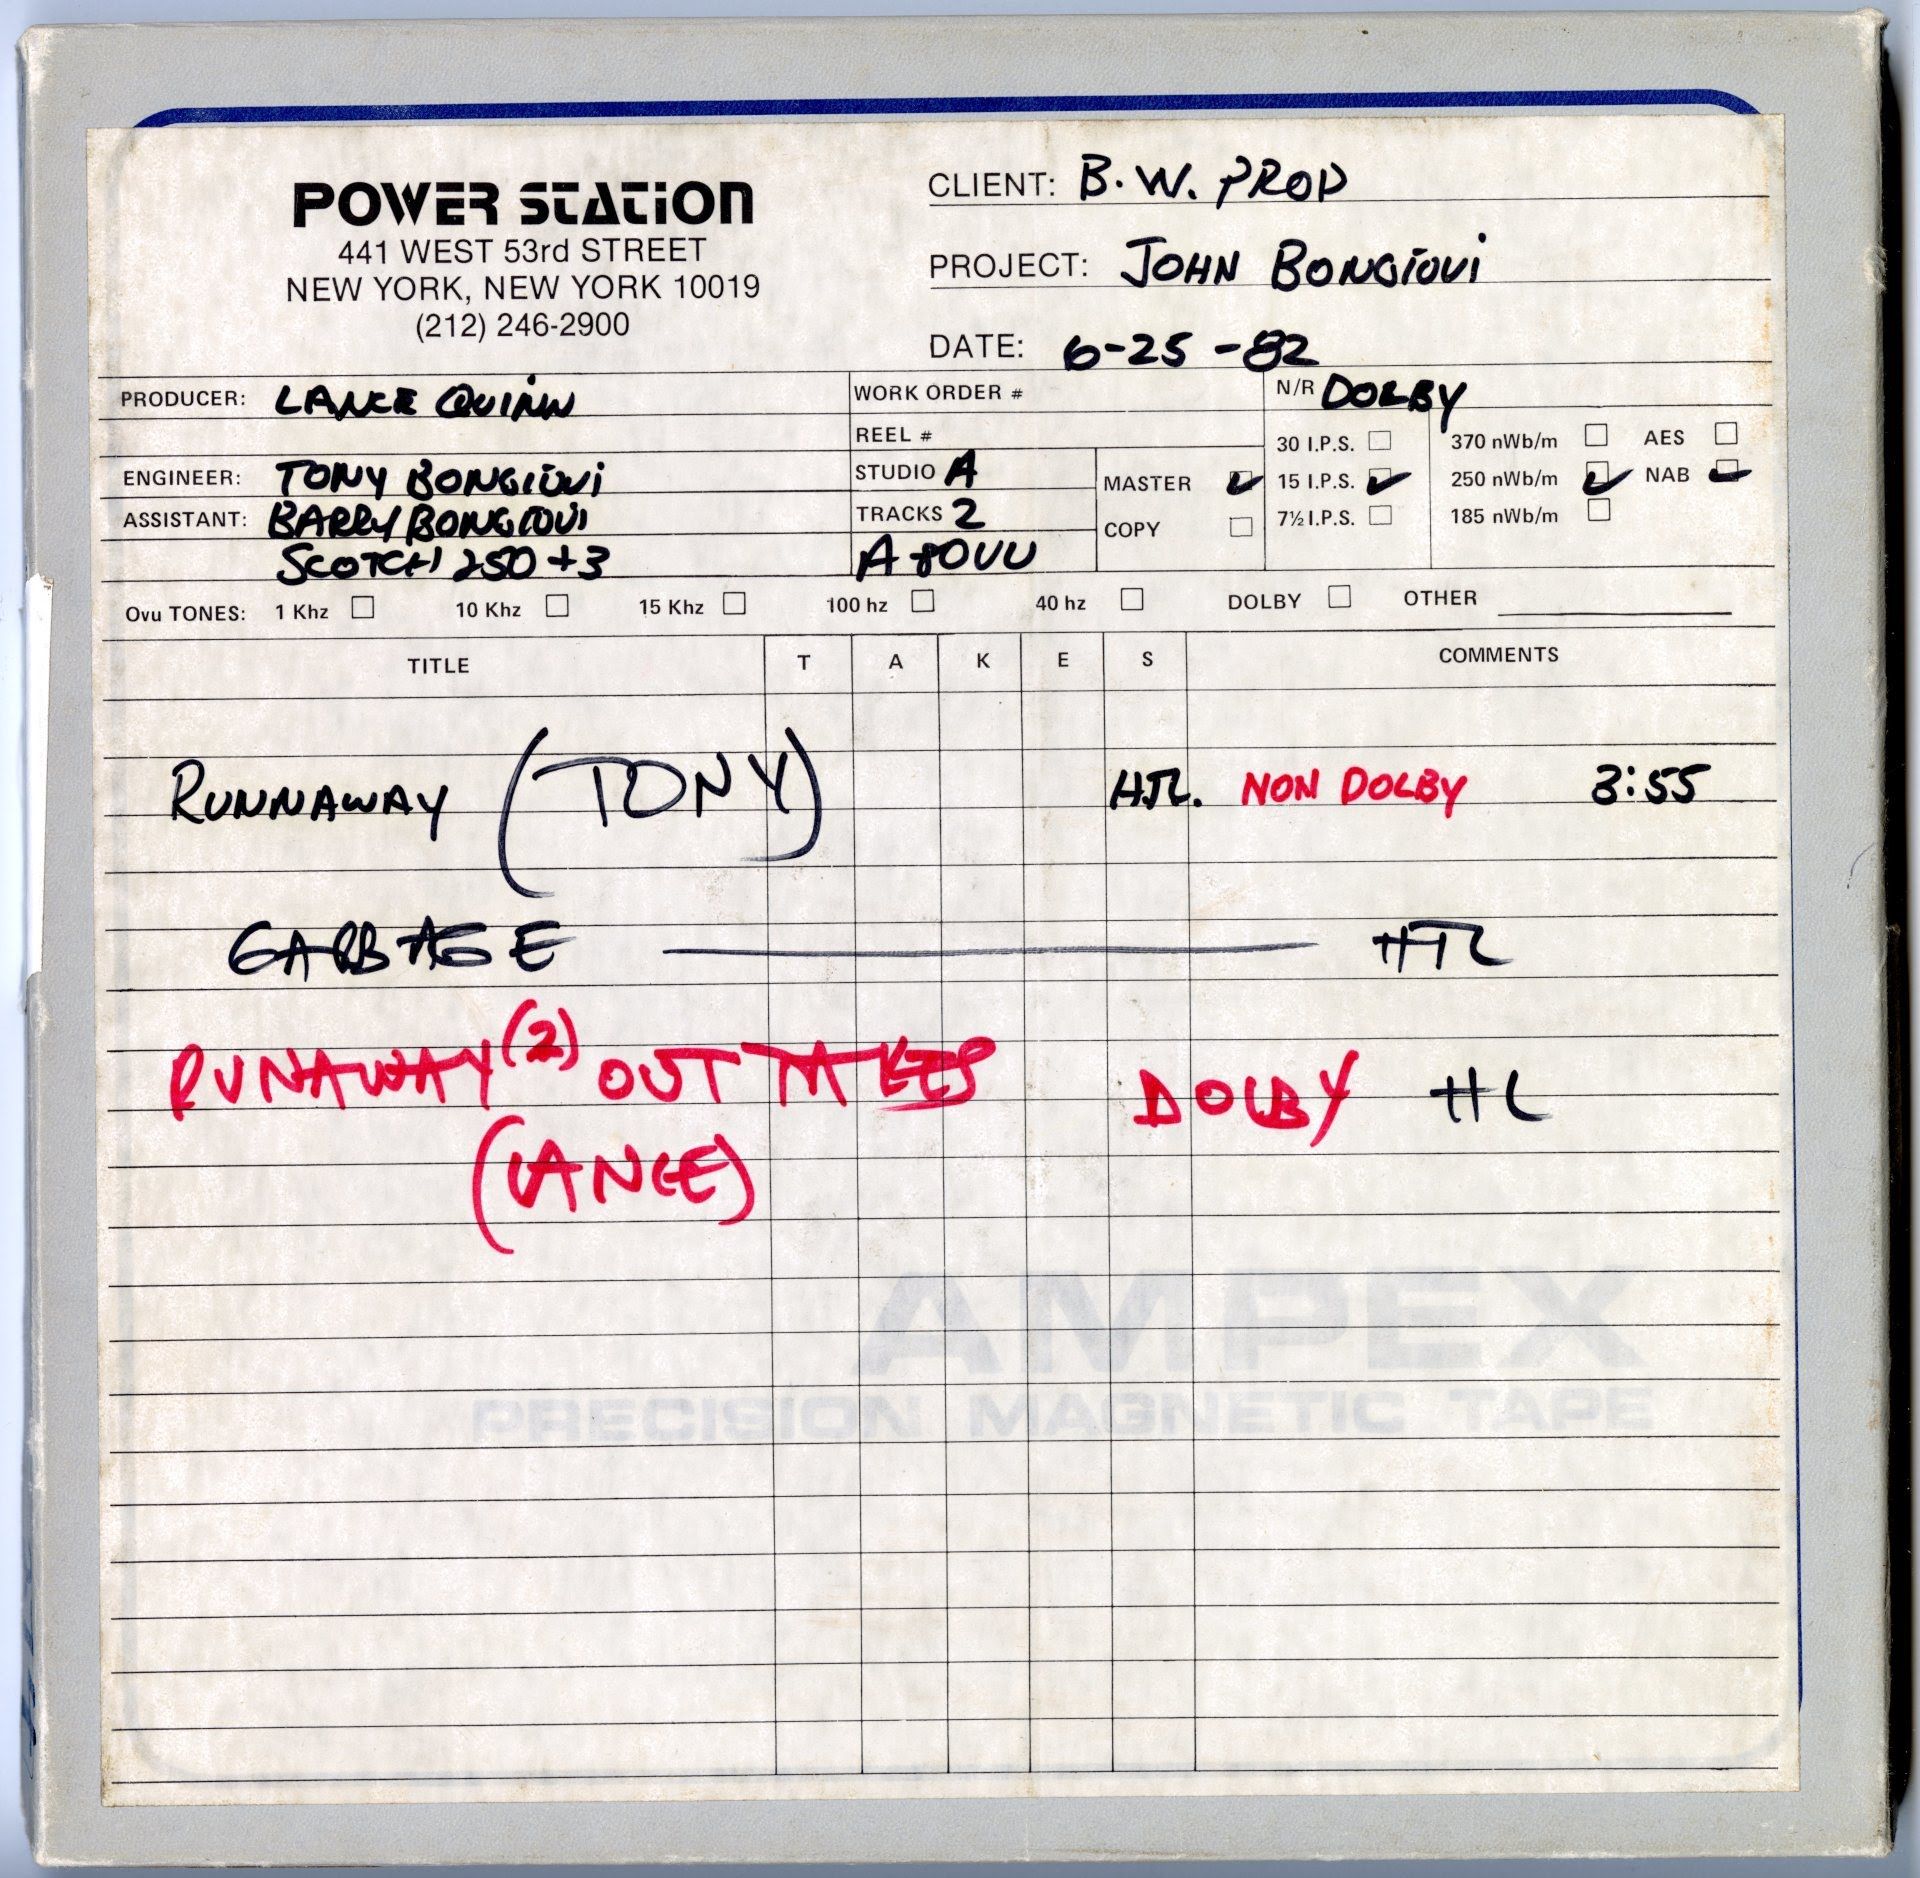 POWER STATION
441 WEST 53rd STREET
NEW YORK, NEW YORK 10019
(212) 246-2900
CLIENT: B.W. PROD
PROJECT: JOHN BONGIOVI
DATE: 6-25-82
PRODUCER: LANCE QUINN
WORK ORDER #
N/R DOLBY
REEL #
30 I.P.S. 370 nWb/m AES
ENGINEER: TONY BONGIOVI
STUDIO A
MASTER ✓ 15 I.P.S. ✓ 250 nWb/m ✓ NAB ✓
ASSISTANT: BARRY BONGIOVI
TRACKS 2
COPY 7½ I.P.S. 185 nWb/m
SCOTCH 250 +3
Ovu TONES: 1 Khz 10 Khz 15 Khz 100 hz 40 hz DOLBY OTHER
TITLE T A K E S COMMENTS
RUNNAWAY (TONY) HTL. NON DOLBY 3:55
GARBAGE — HTL
RUNAWAY (2) OUT TAKES DOLBY HL
(LANCE)
AMPEX
PRECISION MAGNETIC TAPE